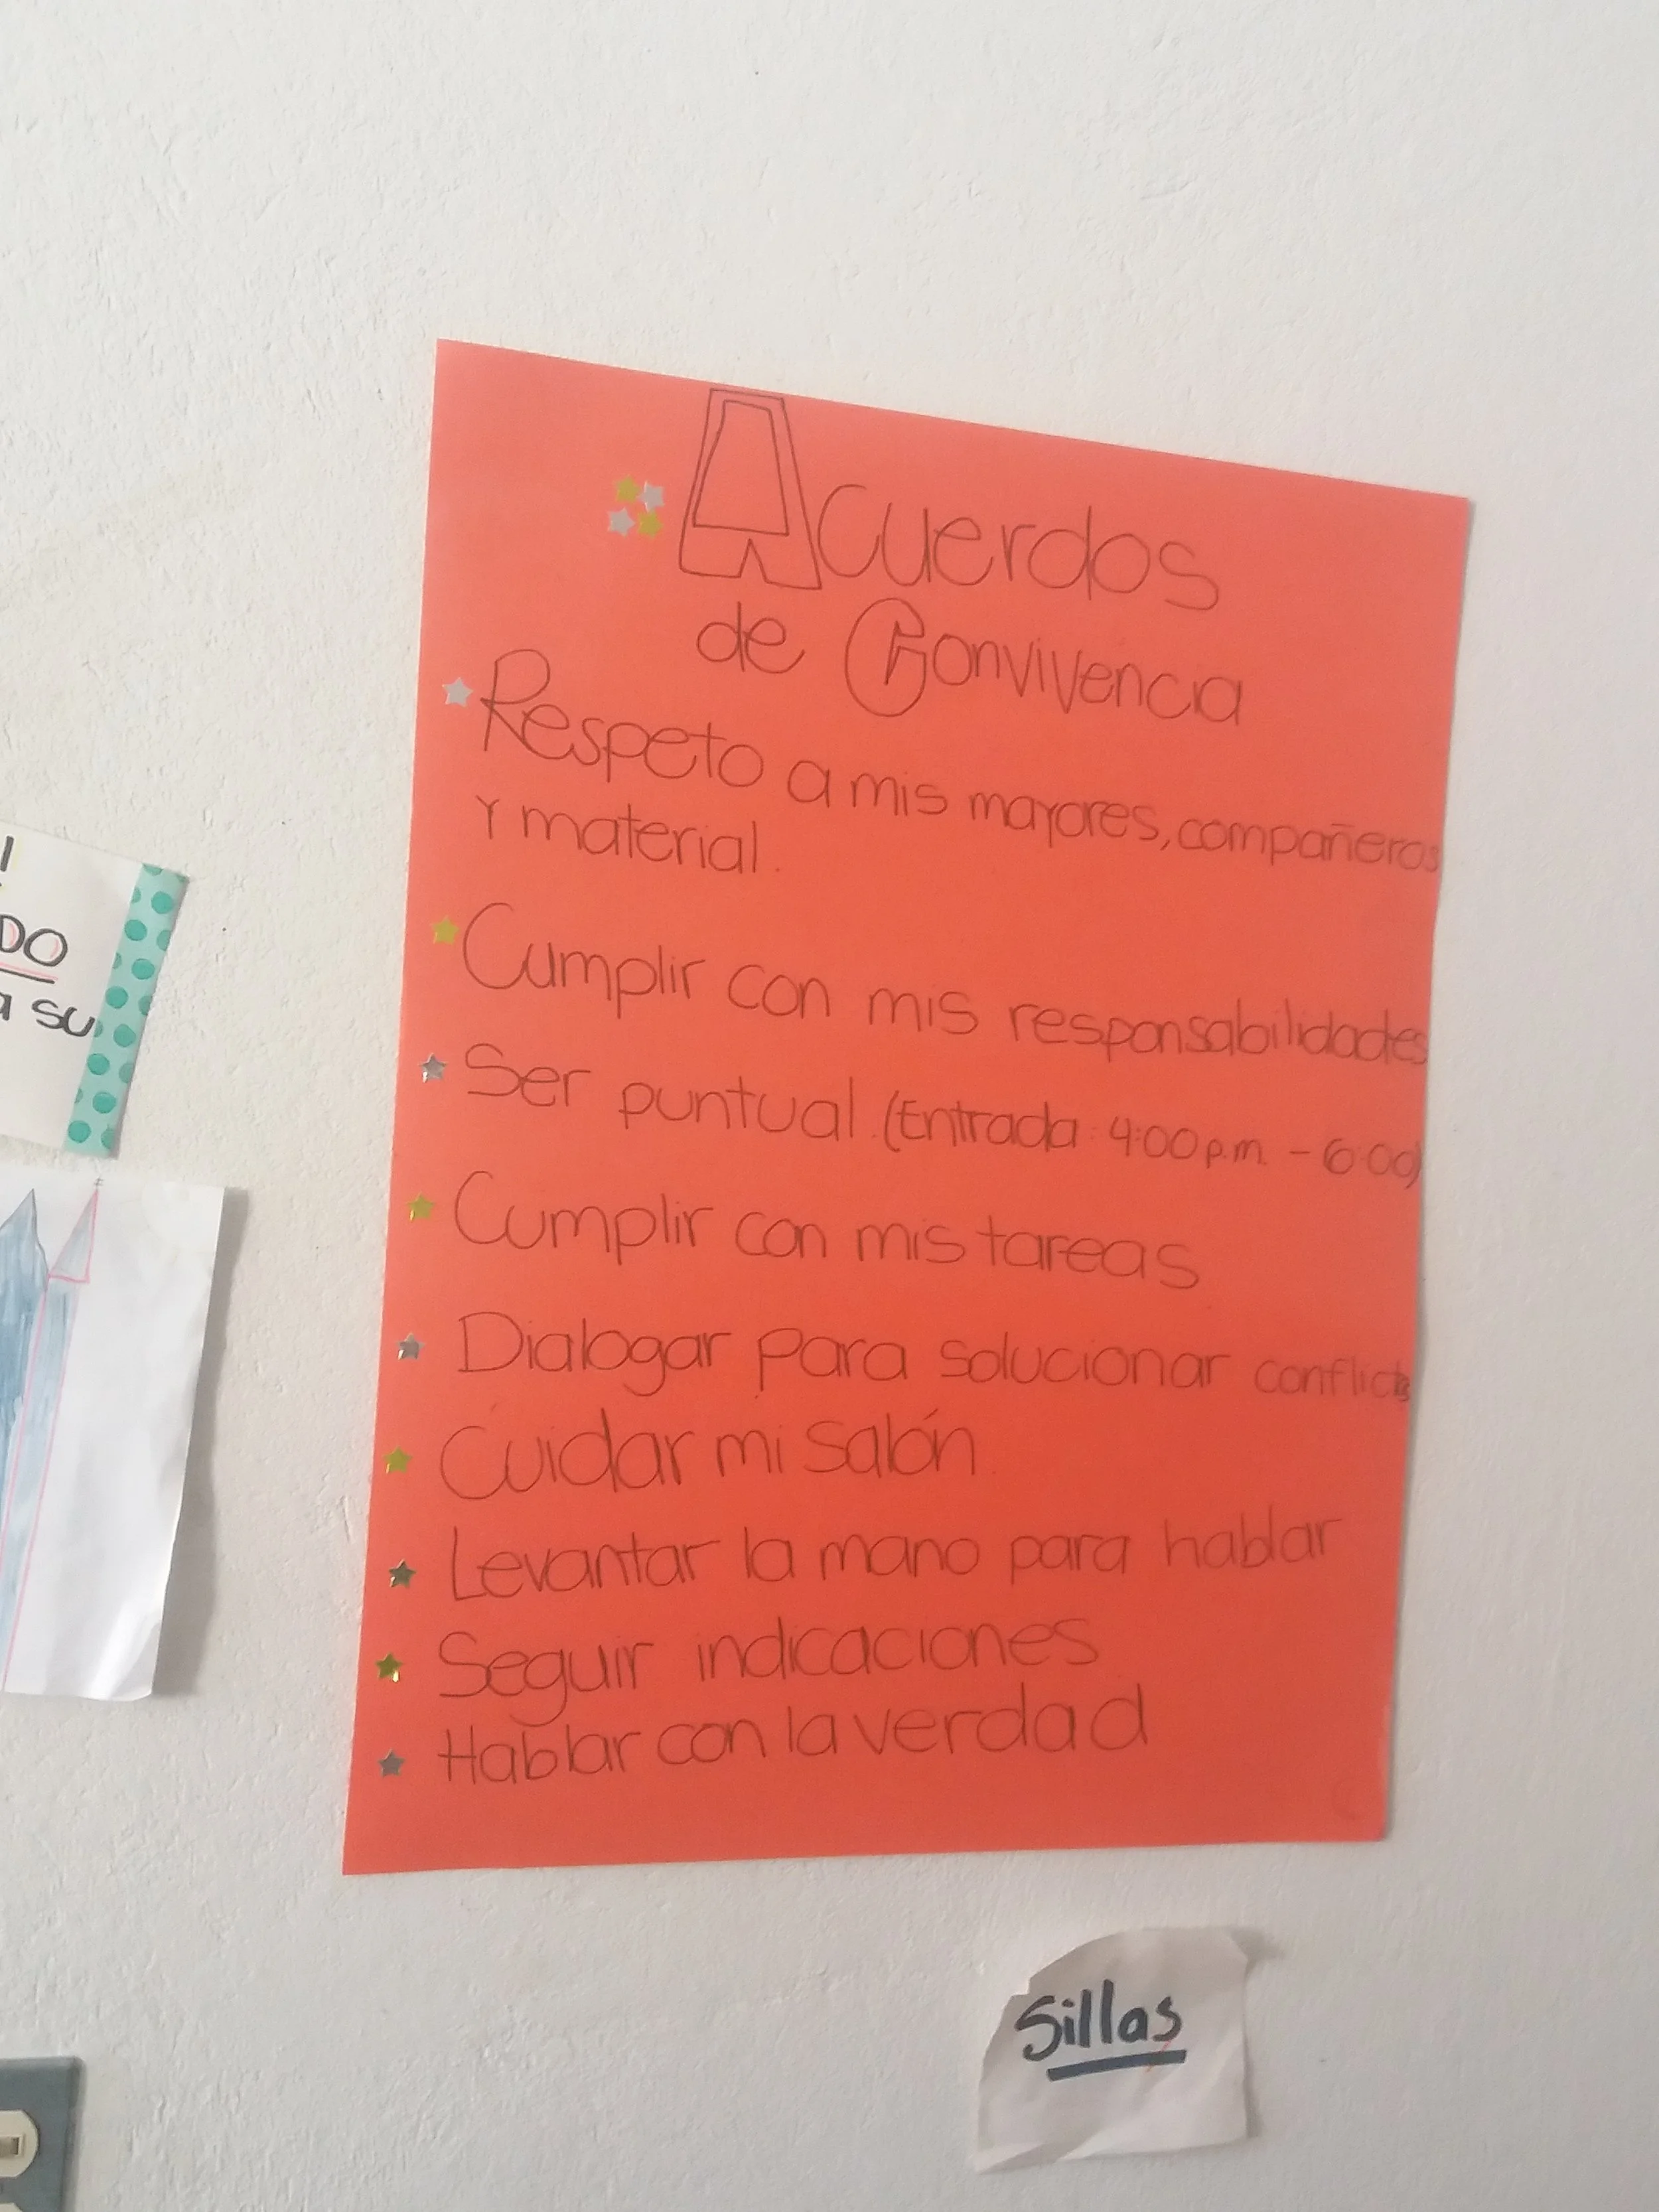 Acuerdos
de Convivencia
Respeto a mis mayores, compañeros
y material.
Cumplir con mis responsabilidades
Ser puntual. (Entrada: 4:00 p.m. - 6:00)
Cumplir con mis tareas
Dialogar para solucionar conflictos
Cuidar mi salón.
Levantar la mano para hablar
Seguir indicaciones
Hablar con la verdad
DO
a su
Sillas